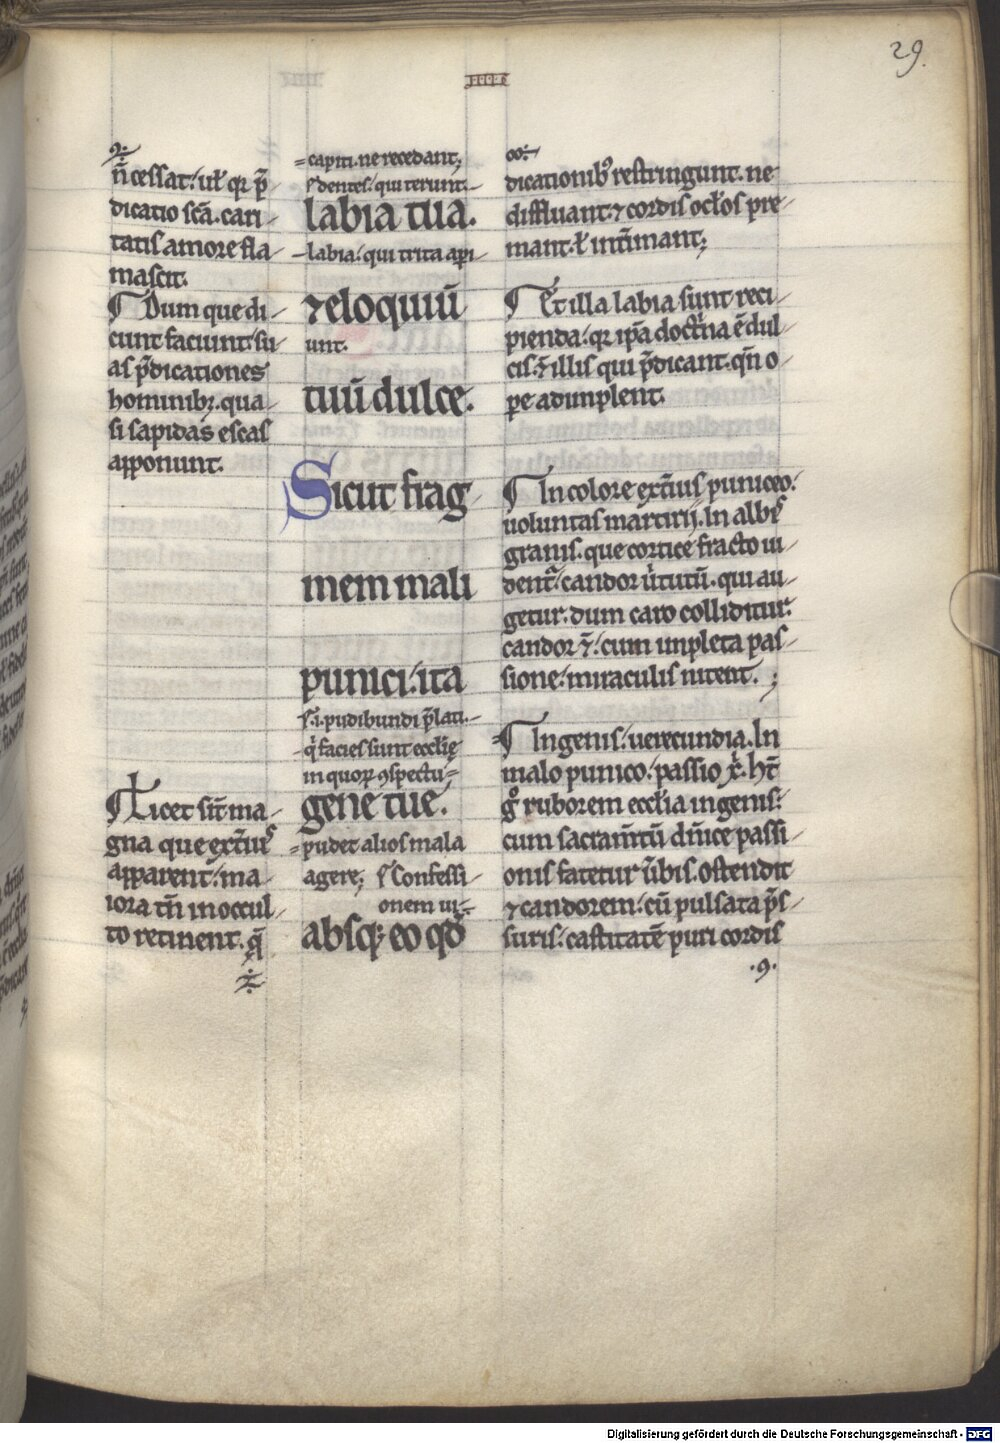 29.
IIII
n̄ cessat. uł qr p̄
dicatio sc̄a. cari
tatis amore fla
mascit.
Dum que di
cunt faciunt. su
as p̄dicationes
hominibꝫ. qua
si sapidas escas
apponunt.
Licet sīt ma
gna que ext̄ius
apparent. ma
iora tn̄ in occul
to retinent. q̄
capiti. ne recedant;
dentes. qui terunt.
labia tua.
labia. qui trita api
⁊ eloquiū
unt.
tuū dulce.
Sicut frag
mem mali
punici. ita
.i. pudibundi p̄lati.
q̄ facies sunt ecclīę
in quoꝝ ꝯspectu
gene tue.
pudet alios mala
agere; Confessi
onem ui.
absqꝫ eo qd̄
dicationibꝰ restringunt. ne
diffluant. ⁊ cordis ocłos pre
mant. ł intīmant;
Et illa labia sunt reci
pienda. qr ip̄a doctͥna ē dul
cis. ⁊ illis qui p̄dicant. qn̄ o
pe adimplent.
In colore ext̄ius puniceo.
uoluntas martirij. In albis
granis. que cortice fracto ui
dent᷑. candor ūtutū. qui au
getur. dum caro colliditur.
candor ē. cum impleta pas
sione. miraculis nitent. ;
In genis. uerecundia. In
malo punico. passio xͥ. hт̄
gͦ ruborem ecclīa in genis.
cum sacram̄tū dn̄ice passi
onis fatetur ūbis. ostendit
⁊ candorem. cū pulsata p̄s
suris. castitatē puri cordis
Digitalisierung gefördert durch die Deutsche Forschungsgemeinschaft - DFG